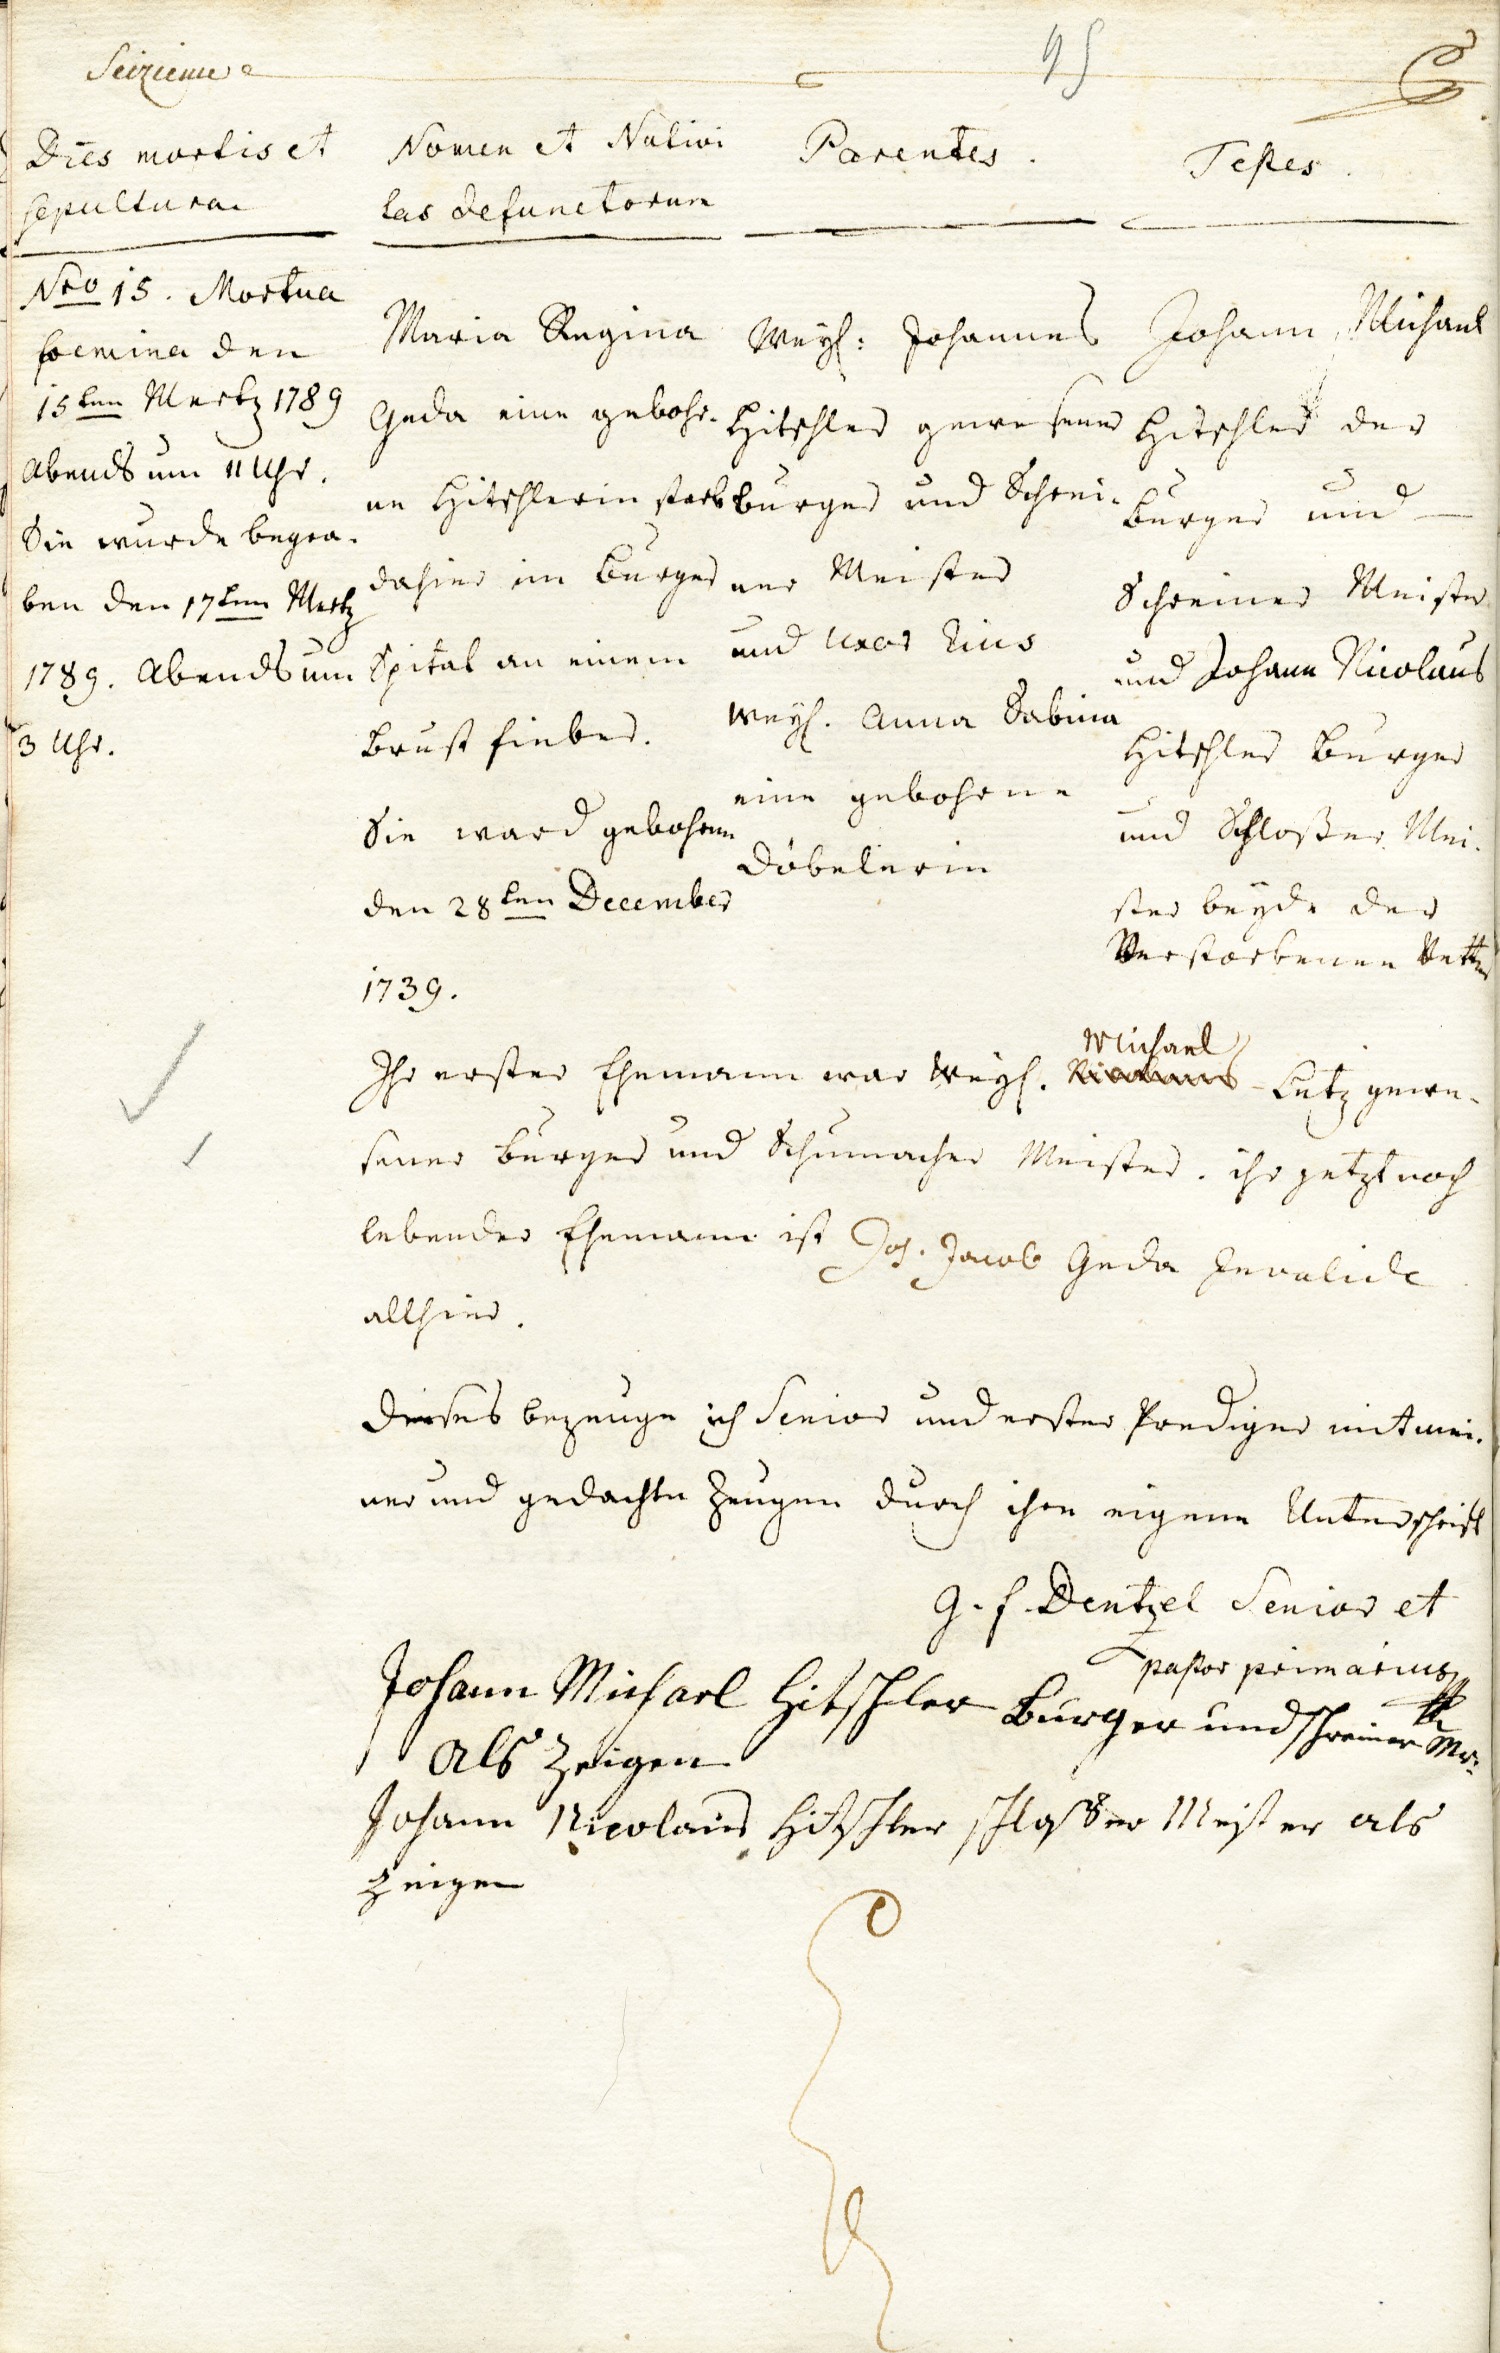 Seizieme
95
Dies mortis et
sepulturae
Nro 15. Mortua
foemina den
15ten Mertz 1789
Abends um 11 Uhr.
Sie wurde begra-
ben den 17ten Mertz
1789. Abends um
3 Uhr.
Nomen et Nativi
tas defunctorum
Maria Regina
Geda eine gebohr-
ne Hitschlerin starb
dahier im Burger
Spital an einem
Brust fieber.
Sie ward gebohren
den 28ten December
1739.
Parentes.
Weyl: Johannes
Hitschler gewesener
burger und Schrei-
ner Meister
und uxor Eius
weyl. Anna Sabina
eine gebohrne
Döbelerin
Testes.
Johann Michael
Hitschler der
Burger und
Schreiner Meister
und Johann Nicolaus
Hitschler Burger
und Schloßer Mei-
ster beyde der
Verstorbenen Vetter
Michael
Ihr erster Ehemann war Weyl. Lutz gewe-
sener burger und Schumacher Meister. ihr jetzt noch
lebender Ehemann ist Joh. Jacob Geda Invalide
allhier.
Dieses bezeuge ich Senior und erster Prediger mit mei-
ner und gedachte Zeugen durch ihre eigene Unterschrift
G. f. Dentzel Senior et
pastor primarius
Johann Michael Hitschler Burger und schreiner Mr:
als Zeigen
Johann Nicolaus Hitschler schloßer Meister als
zeigen